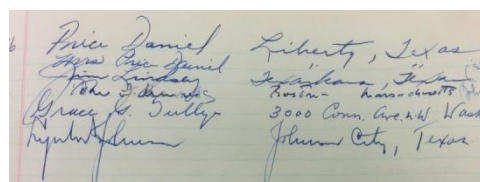 Price Daniel Liberty, Texas
Mrs Price Daniel " "
Jim Lindsey Texarkana, Texas
John F. Boston - Massachusetts
Grace G. Tully 3000 Conn. Ave. N.W. Wash
Lyndon Johnson Johnson City, Texas